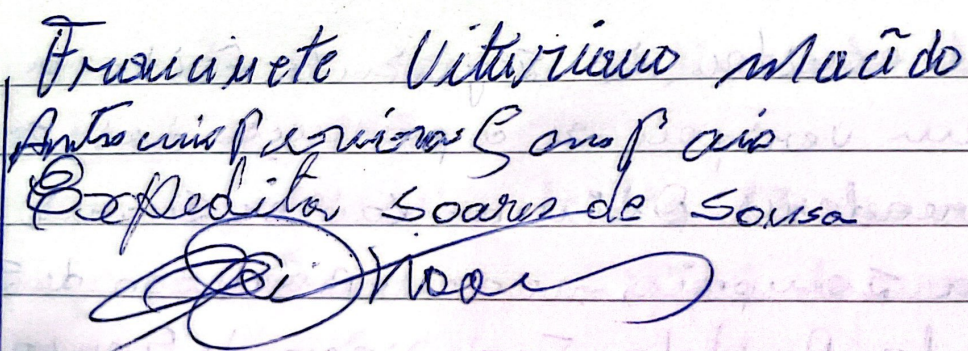 Francinete Vituriano Macêdo
Antonio Pereira Sampaio
Expedita Soares de Sousa